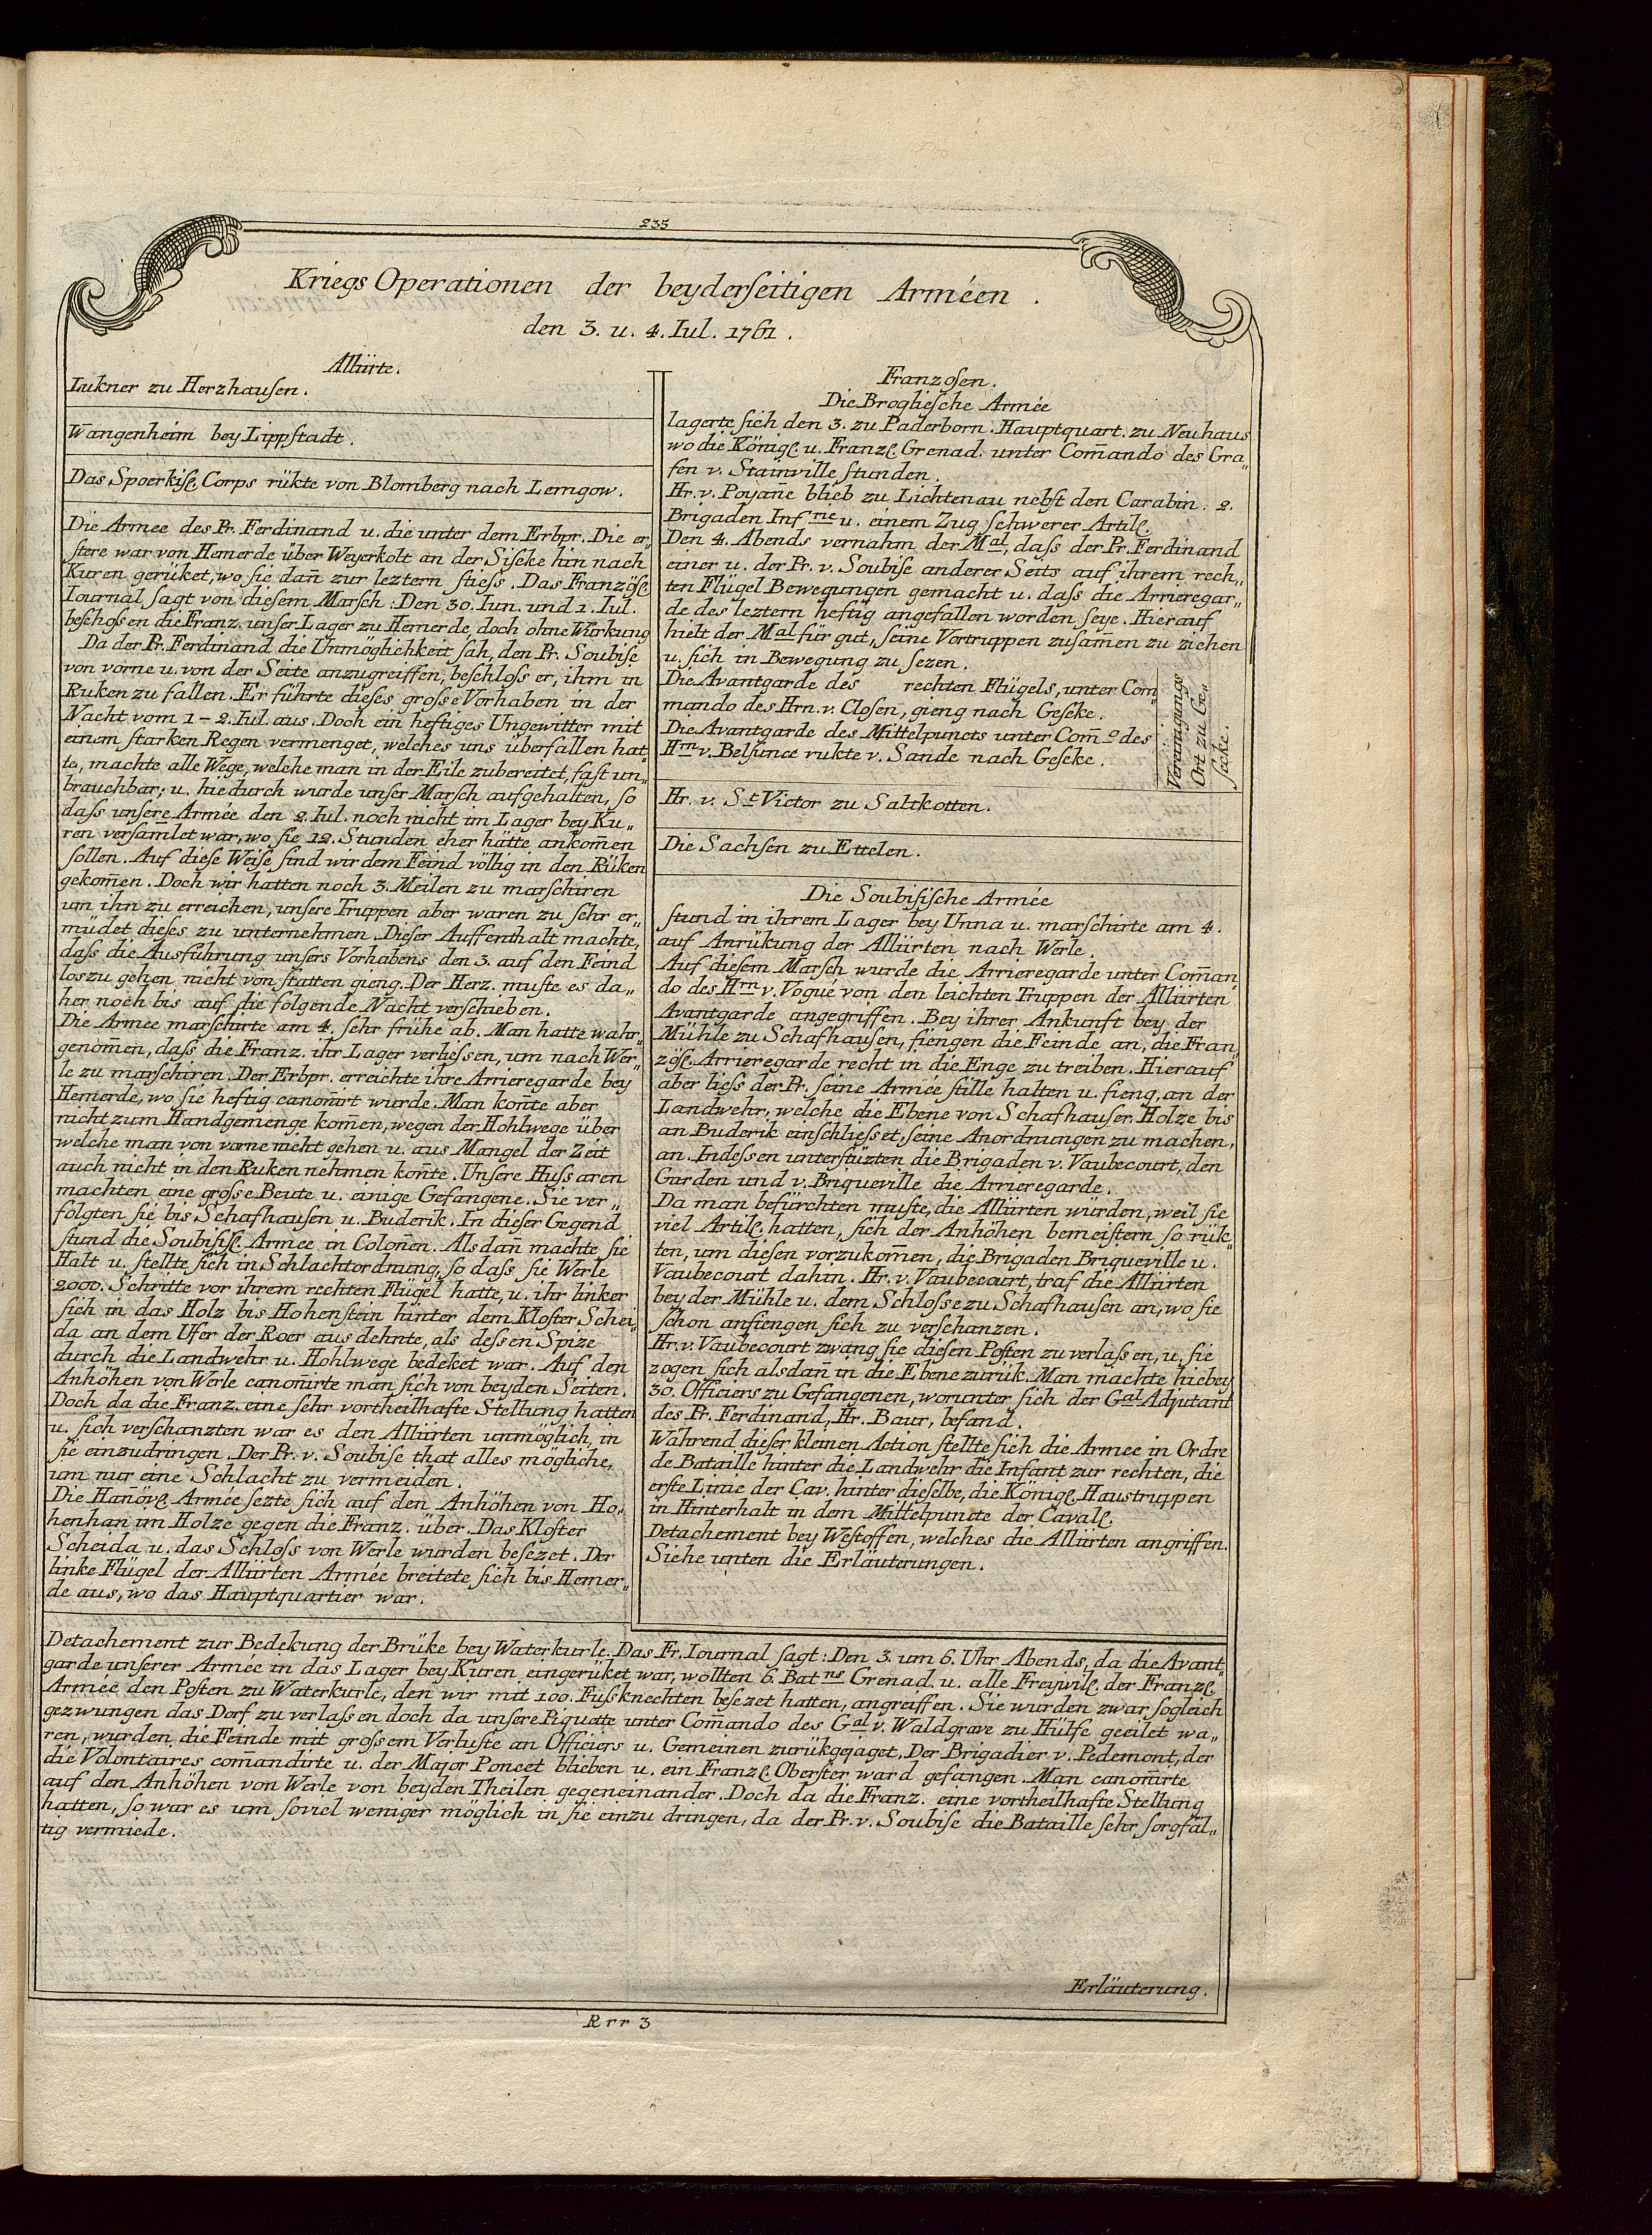 235
Kriegs Operationen der beyderseitigen Arméen.
den 3. u. 4. Iul. 1761.
Alliirte.
Lukner zu Herzhausen.
Wangenheim bey Lippstadt.
Das Spoerkisl. Corps rükte von Blomberg nach Lemgow.
Die Armee des Pr. Ferdinand u. die unter dem Erbpr. Die er„
stere war von Hemerde über Weyerkolt an der Siseke hin nach
Kuren gerüket, wo sie dan̄ zur leztern stiess. Das Französl.
Iournal sagt von diesem Marsch: Den 30. Iun. und 1. Iul.
beschossen die Franz. unser Lager zu Hemerde, doch ohne Würkung
Da der Pr. Ferdinand die Unmöglichkeit sah, den Pr. Soubise
von vorne u. von der Seite anzugreiffen, beschloss er, ihm in
Ruken zu fallen. Er führte dieses grosse Vorhaben in der
Nacht vom 1-2. Iul. aus. Doch ein heftiges Ungewitter mit
einem starken Regen vermenget, welches uns überfallen hat„
te, machte alle Wege, welche man in der Eile zubereitet, fast un„
brauchbar; u. hiedurch wurde unser Marsch aufgehalten, so
dass unsere Armée den 2. Iul. noch nicht im Lager bey Ku„
ren versam̄let war, wo sie 12. Stunden eher hätte ankom̄en
sollen. Auf diese Weise sind wir dem Feind völlig in den Rüken
gekom̄en. Doch wir hatten noch 3. Meilen zu marschiren
um ihn zu erreichen, unsere Truppen aber waren zu sehr er„
müdet dieses zu unternehmen. Dieser Auffenthalt machte,
dass die Ausführung unsers Vorhabens den 3. auf den Feind
loszu gehen nicht von statten gieng. Der Herz. muste es da„
her noch bis auf die folgende Nacht verschieben.
Die Armee marschirte am 4. sehr frühe ab. Man hatte wahr„
genom̄en, dass die Franz. ihr Lager verliessen, um nach Wer„
le zu marschiren. Der Erbpr. erreichte ihre Arrieregarde bey
Hemerde, wo sie heftig canon̄irt wurde. Man kon̄te aber
nicht zum Handgemenge kom̄en, wegen der Hohlwege über
welche man von vorne nicht gehen u. aus Mangel der Zeit
auch nicht in den Ruken nehmen kon̄te. Unsere Hussaren
machten eine grosse Beute u. einige Gefangene. Sie ver„
folgten sie bis Schafhausen u. Buderik. In dieser Gegend
stund die Soubisisl. Armee in Colon̄en. Als dan̄ machte sie
Halt u. stellte sich in Schlachtordnung, so dass sie Werle
2000. Schritte vor ihrem rechten Flügel hatte, u. ihr linker
sich in das Holz bis Hohenstein hinter dem Kloster Schei„
da an dem Ufer der Roer aus dehnte, als dessen Spize
durch die Landwehr u. Hohlwege bedeket war. Auf den
Anhöhen von Werle canon̄irte man sich von beyden Seiten.
Doch da die Franz. eine sehr vortheilhafte Stellung hatten
u. sich verschanzten war es den Alliirten unmöglich, in
sie einzudringen. Der Pr. v. Soubise that alles mögliche,
um nur eine Schlacht zu vermeiden.
Die Han̄övl. Armée sezte sich auf den Anhöhen von Ho„
henhan im Holze gegen die Franz. über. Das Kloster
Scheida u. das Schloss von Werle wurden besezet. Der
linke Flügel der Alliirten Armée breitete sich bis Hemer„
de aus, wo das Hauptquartier war.
Franzosen.
Die Brogliesche Armée
lagerte sich den 3. zu Paderborn. Hauptquart. zu Neuhaus
wo die Königl. u. Franzl. Grenad. unter Com̄ando des Gra„
fen v. Stainville stunden.
Hr. v. Poyan̄e blieb zu Lichtenau nebst den Carabin. 2.
Brigaden Inf rie u. einem Zug schwerer Artill.
Den 4. Abends vernahm der Mal, dass der Pr. Ferdinand
einer u. der Pr. v. Soubise anderer Seits auf ihrem rech„
ten Flügel Bewegungen gemacht u. dass die Arrieregar„
de des leztern heftig angefallen worden seye. Hierauf
hielt der Mal für gut, seine Vortruppen zusam̄en zu ziehen
u. sich in Bewegung zu sezen.
Die Avantgarde des rechten Flügels, unter Com„
mando des Hrn. v. Closen, gieng nach Geseke.
Die Avantgarde des Mittelpuncts unter Com̄o des
Hrn v. Belsunce rukte v. Sande nach Geseke.
Vereinigungs
Ort zu Ge„
secke.
Hr. v. St Victor zu Saltkotten.
Die Sachsen zu Ettelen.
Die Soubisische Armée
stund in ihrem Lager bey Unna u. marschirte am 4.
auf Anrükung der Alliirten nach Werle.
Auf diesem Marsch wurde die Arrieregarde unter Com̄an„
do des Hrn v. Vogué von den leichten Truppen der Alliirten
Avantgarde angegriffen. Bey ihrer Ankunft bey der
Mühle zu Schafhausen, fiengen die Feinde an, die Fran„
zösl. Arrieregarde recht in die Enge zu treiben. Hierauf
aber liess der Pr. seine Armée stille halten u. fieng, an der
Landwehr, welche die Ebene von Schafhauser Holze bis
an Buderik einschliesset, seine Anordnungen zu machen,
an. Indessen unterstüzten die Brigaden v. Vaubecourt, den
Garden und v. Briqueville die Arrieregarde.
Da man befürchten muste, die Alliirten würden, weil sie
viel Artill. hatten, sich der Anhöhen bemeistern so rük„
ten, um diesen vorzukom̄en, die Brigaden Briqueville u.
Vaubecourt dahin. Hr. v. Vaubecourt, traf die Alliirten
bey der Mühle u. dem Schlosse zu Schafhausen an, wo sie
schon anfiengen sich zu verschanzen.
Hr. v. Vaubecourt zwang sie diesen Posten zu verlassen, u. sie
zogen sich alsdan̄ in die Ebene zurük. Man machte hiebey
30. Officiers zu Gefangenen, worunter sich der Gal Adjutant
des Pr. Ferdinand, Hr. Baur, befand.
Während dieser kleinen Action stellte sich die Armee in Ordre
de Bataille hinter die Landwehr die Infant zur rechten, die
erste Linie der Cav. hinter dieselbe, die Königl. Haustruppen
in Hinterhalt in dem Mittelpuncte der Cavall.
Detachement bey Westoffen, welches die Alliirten angriffen.
Siehe unten die Erläuterungen.
Detachement zur Bedekung der Brüke bey Waterkurle. Das Fr. Iournal sagt: Den 3. um 6. Uhr Abends, da die Avant„
garde unserer Armée in das Lager bey Kuren eingerüket war, wollten 6. Bat ns Grenad. u. alle Freywill. der Franzl.
Armee den Posten zu Waterkurle, den wir mit 100. Fussknechten besezet hatten, angreiffen. Sie wurden zwar sogleich
gezwungen das Dorf zu verlassen doch da unsere Piquette unter Com̄ando des Gal v. Waldgrave zu Hülfe geeilet wa„
ren, wurden die Feinde mit grossem Verluste an Officiers u. Gemeinen zurükgejaget. Der Brigadier v. Pedemont, der
die Volontaires com̄andirte u. der Major Poncet blieben u. ein Franzl. Oberster ward gefangen. Man canon̄irte
auf den Anhöhen von Werle von beyden Theilen gegeneinander. Doch da die Franz. eine vortheilhafte Stellung
hatten, so war es um soviel weniger möglich in sie einzu dringen, da der Pr. v. Soubise die Bataille sehr sorgfäl„
tig vermiede.
Erläuterung.
Rrr 3